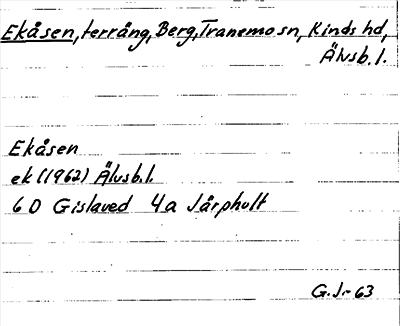 Ekåsen, terräng, Berg, Tranemo sn, Kinds hd,
Älvsb. l.
Ekåsen
ek (1962) Älvsb. l.
6 D Gislaved 4a Järphult
G. J-63